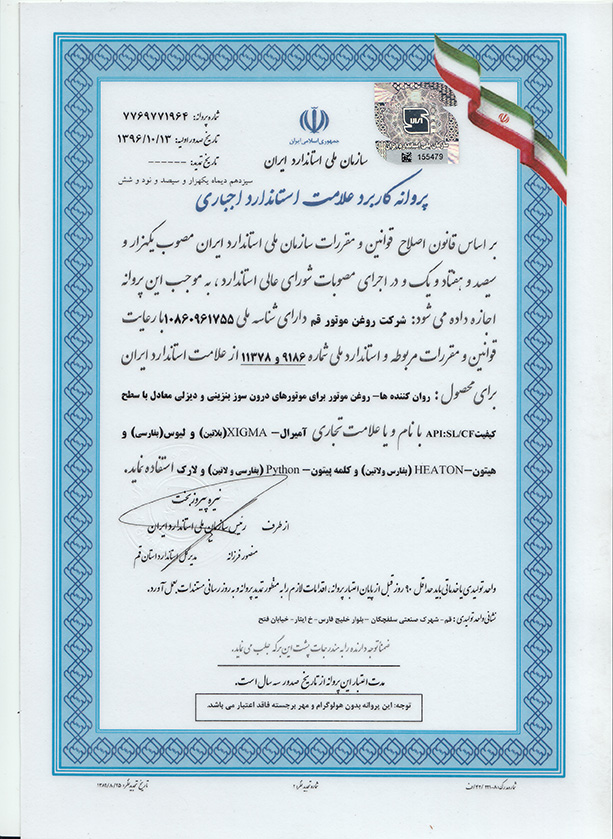 شماره پروانه: ۷۷۶۹۷۷۱۹۶۴
تاریخ صدور اولیه: ۱۳۹۶/۱۰/۱۳
تاریخ تمدید: ------
سیزدهم دیماه یکهزار و سیصد و نود و شش
جمهوری اسلامی ایران
سازمان ملی استاندارد ایران
155479
پروانه کاربرد علامت استاندارد اجباری
بر اساس قانون اصلاح قوانین و مقررات سازمان ملی استاندارد ایران مصوب یکهزار و
سیصد و هفتاد و یک و در اجرای مصوبات شورای عالی استاندارد، به موجب این پروانه
اجازه داده می شود: شرکت روغن موتور قم دارای شناسه ملی ۱۰۸۶۰۹۶۱۷۵۵ با رعایت
قوانین و مقررات مربوطه و استاندارد ملی شماره ۹۱۸۶ و ۱۱۳۷۸ از علامت استاندارد ایران
برای محصول: روان کننده ها- روغن موتور برای موتورهای درون سوز بنزینی و دیزلی معادل با سطح
کیفیت API:SL/CF با نام و یا علامت تجاری آمیرال-XIGMA(بلاتین) و لیوس(بفارسی) و
هیتون-HEATON (بفارس ولاتین) و کلمه پیتون-Python (بفارسی و لاتین) و لارک استفاده نماید.
نیره پیروزبخت
رئیس سازمان ملی استاندارد ایران
از طرف
منصور فرزانه
مدیر کل استاندارد استان قم
واحد تولیدی یا خدماتی باید حداقل ۹۰ روز قبل از پایان اعتبار پروانه، اقدامات لازم را به منظور تمدید پروانه و به روز رسانی مستندات بعمل آورد.
نشانی واحد تولیدی: قم- شهرک صنعتی سلفچگان- بلوار خلیج فارس- خ ایثار- خیابان فتح
ضمنا توجه دارنده را به مندرجات پشت این برگه جلب می نماید.
مدت اعتبار این پروانه از تاریخ صدور سه سال است.
توجه: این پروانه بدون هولوگرام و مهر برجسته فاقد اعتبار می باشد.
شماره تجدید نظر: ۲